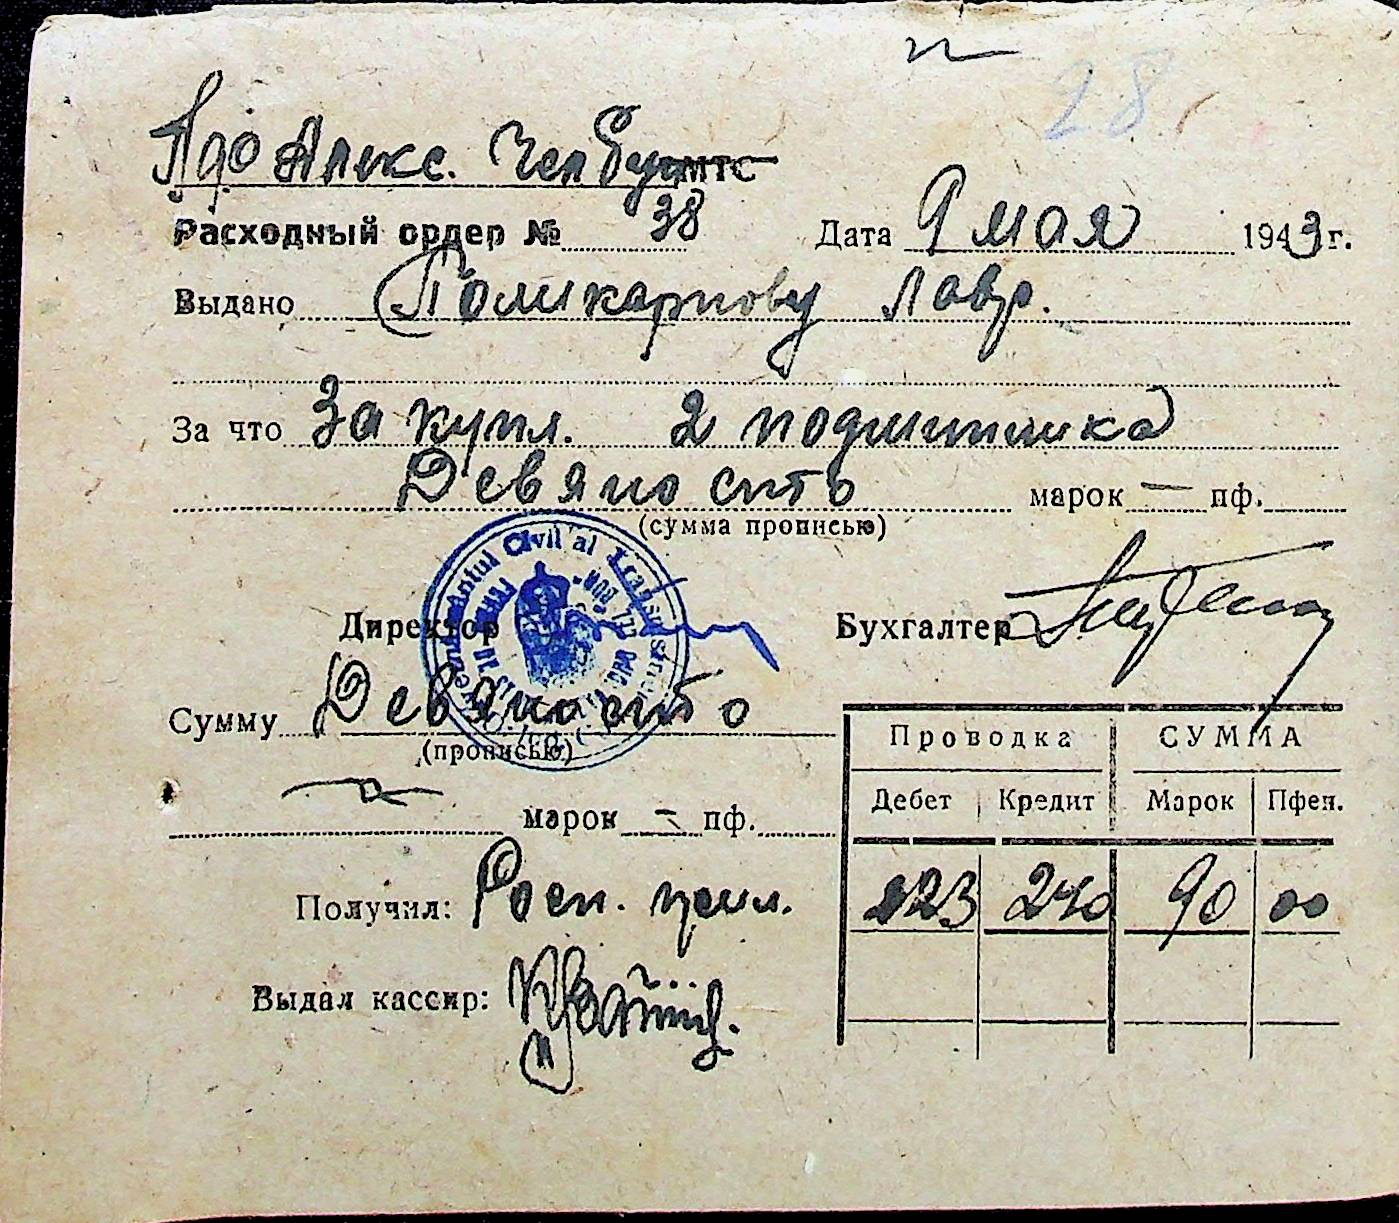 28
Алекс. МТС
Расходный ордер № 38 Дата 9 мая 1943 г.
Выдано Поликарпову Лавр.
За что За купл. 2 подшипника
Девяносто марок — пф.
(сумма прописью)
Civil al
Директор Бухгалтер
Сумму Девяносто
(прописью)
марок — пф.
Проводка СУММА
Дебет Кредит Марок Пфен.
123 240 90 00
Получил:
Выдал кассир: